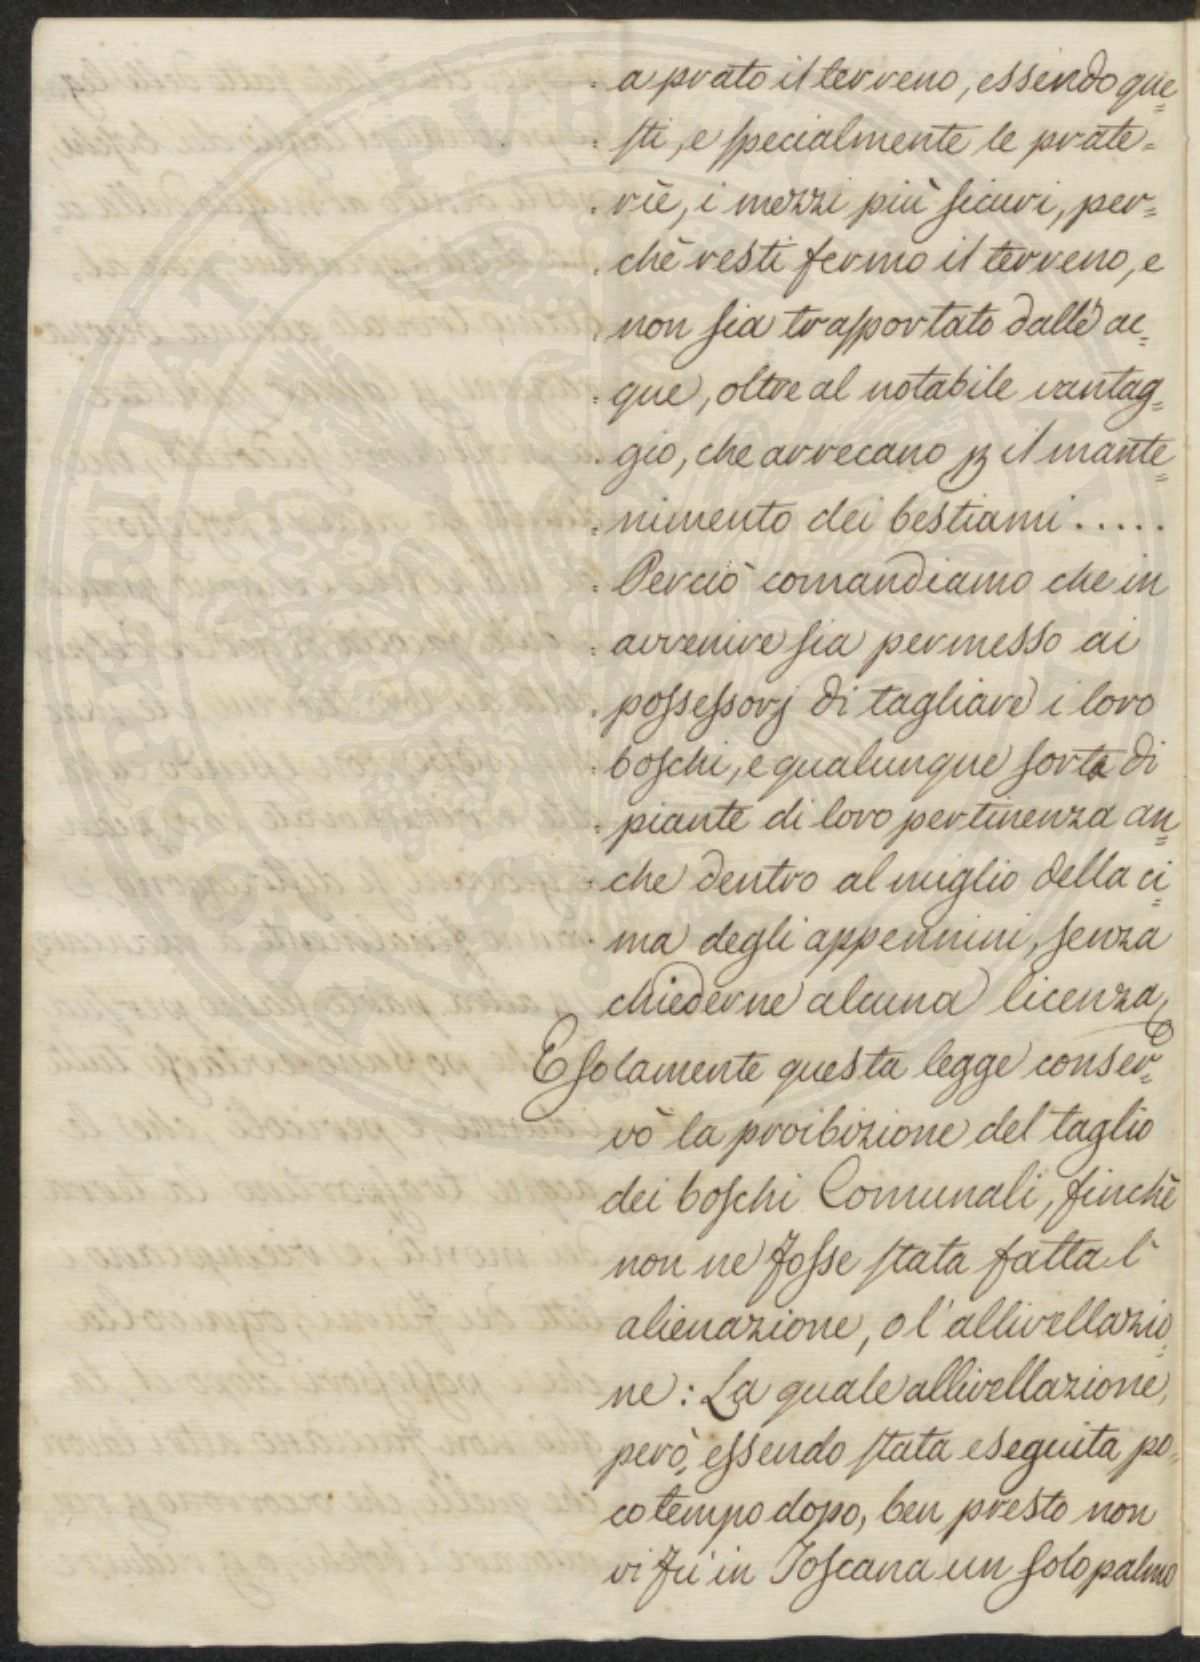 = a prato il terreno, essendo que=
= sti, e specialmente le prate=
= rie, i mezzi più sicuri, per=
= chè resti fermo il terreno, e
= non sia trasportato dalle ac=
= que, oltre al notabile vantag=
= gio, che arrecano ꝑ il mante=
= nimento dei bestiami.....
= Perciò comandiamo che in
= avvenire sia permesso ai
= possessorj di tagliare i loro
= boschi, e qualunque sorta di
= piante di loro pertinenza an=
= che dentro al miglio della ci=
= ma degli appennini, senza
chiederne alcuna licenza,
E solamente questa legge conser=
vò la proibizione del taglio
dei boschi Comunali, finchè
non ne fosse stata fatta l'
alienazione, o l'allivellazio=
ne: La quale allivellazione,
però, essendo stata eseguita po=
co tempo dopo, ben presto non
vi fù in Toscana un solo palmo
PUBLI